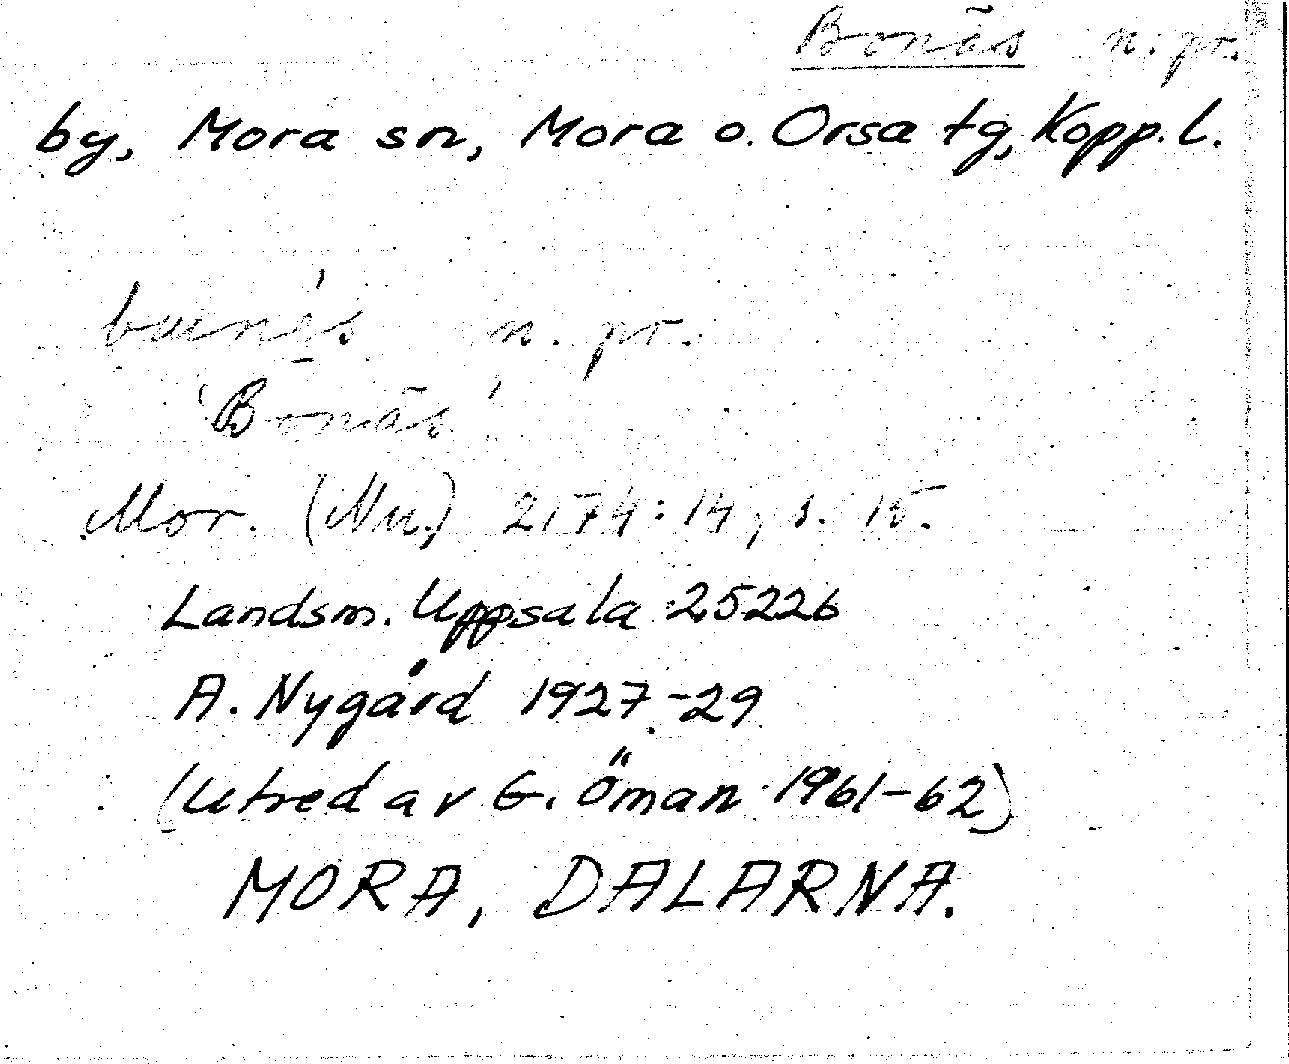 Bonäs n. pr.
by, Mora sn, Mora o. Orsa tg, Kopp. l.
n. pr.
'Bonäs'
Mor. (Nu.) 2174:14, s. 15.
Landsm. Uppsala 25226
A. Nygård 1927-29
(Utred av G. Öman 1961-62)
MORA, DALARNA.